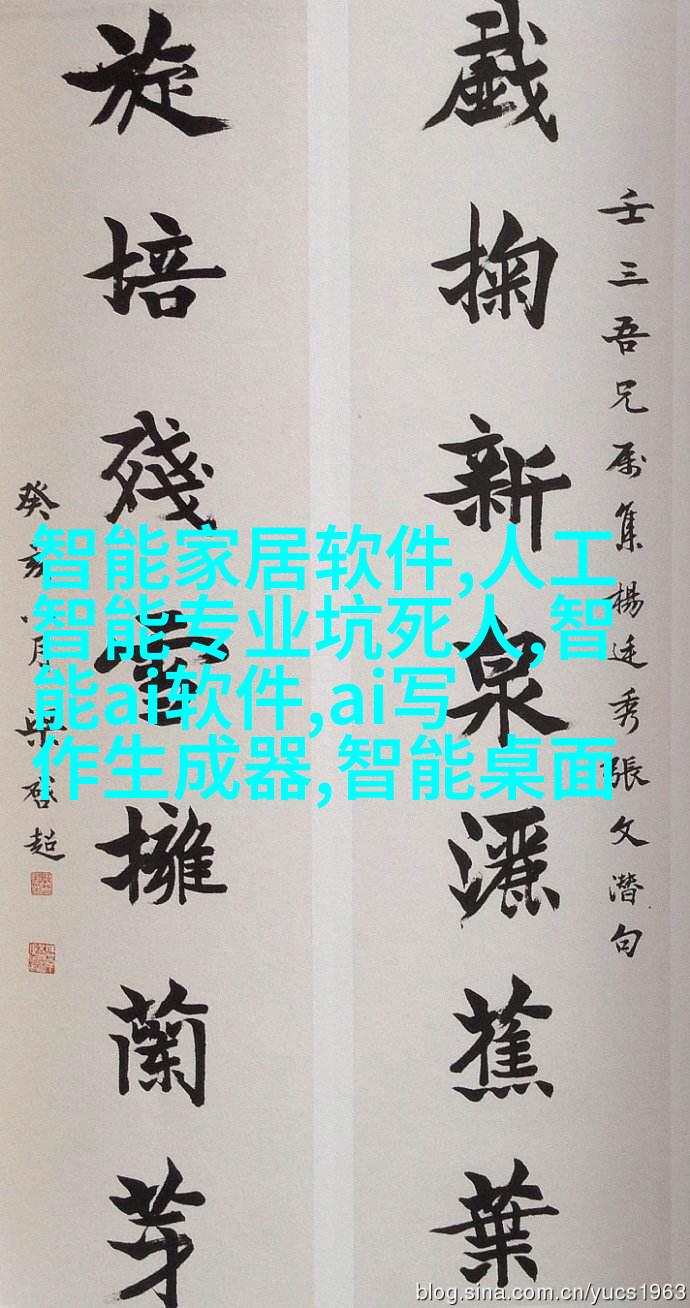 壬三吾兄属集楊廷秀張文潛句
戲掬新泉灑蕉葉
旋培殘擁蘭芽
癸亥八月梁啓超
智能家居软件,人工
智能专业坑死人,智
能ai软件,ai写
作生成器,智能桌面
blog.sina.com.cn/yucs1963